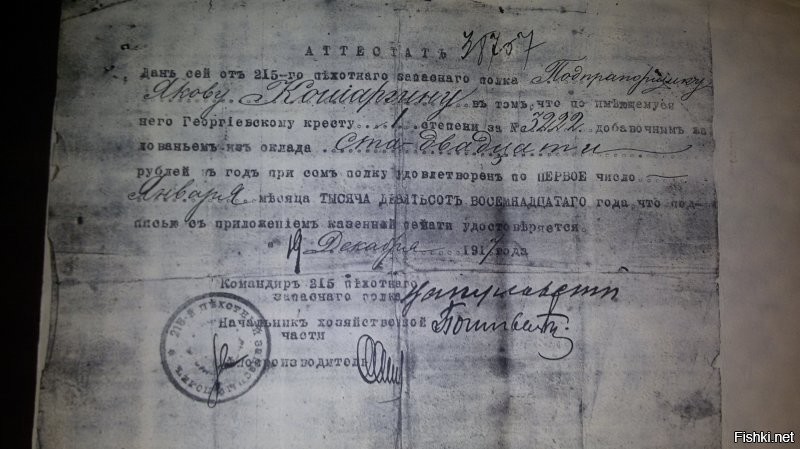 АТТЕСТАТЪ 38757
Данъ сей отъ 215-го пѣхотнаго запаснаго полка Подпрапорщику
Якову въ томъ, что по имѣющемуся
него Георгіевскому кресту 1 степени за № 3222 добавочнымъ жа
лованьемъ изъ оклада ста двадцати
рублей въ годъ при семъ полку удовлетворенъ по ПЕРВОЕ число
Января мѣсяца ТЫСЯЧА ДЕВЯТЬСОТЪ ВОСЕМНАДЦАТАГО года, что под-
писью съ приложеніемъ казенной печати удостовѣряется.
" 19 " Декабря 1917 года
Командиръ 215 пѣхотнаго
запаснаго полка
Начальникъ хозяйственной
части
Дѣлопроизводитель
215-й ПѢХОТНЫЙ ЗАПАСНЫЙ ПОЛКЪ
Fishki.net